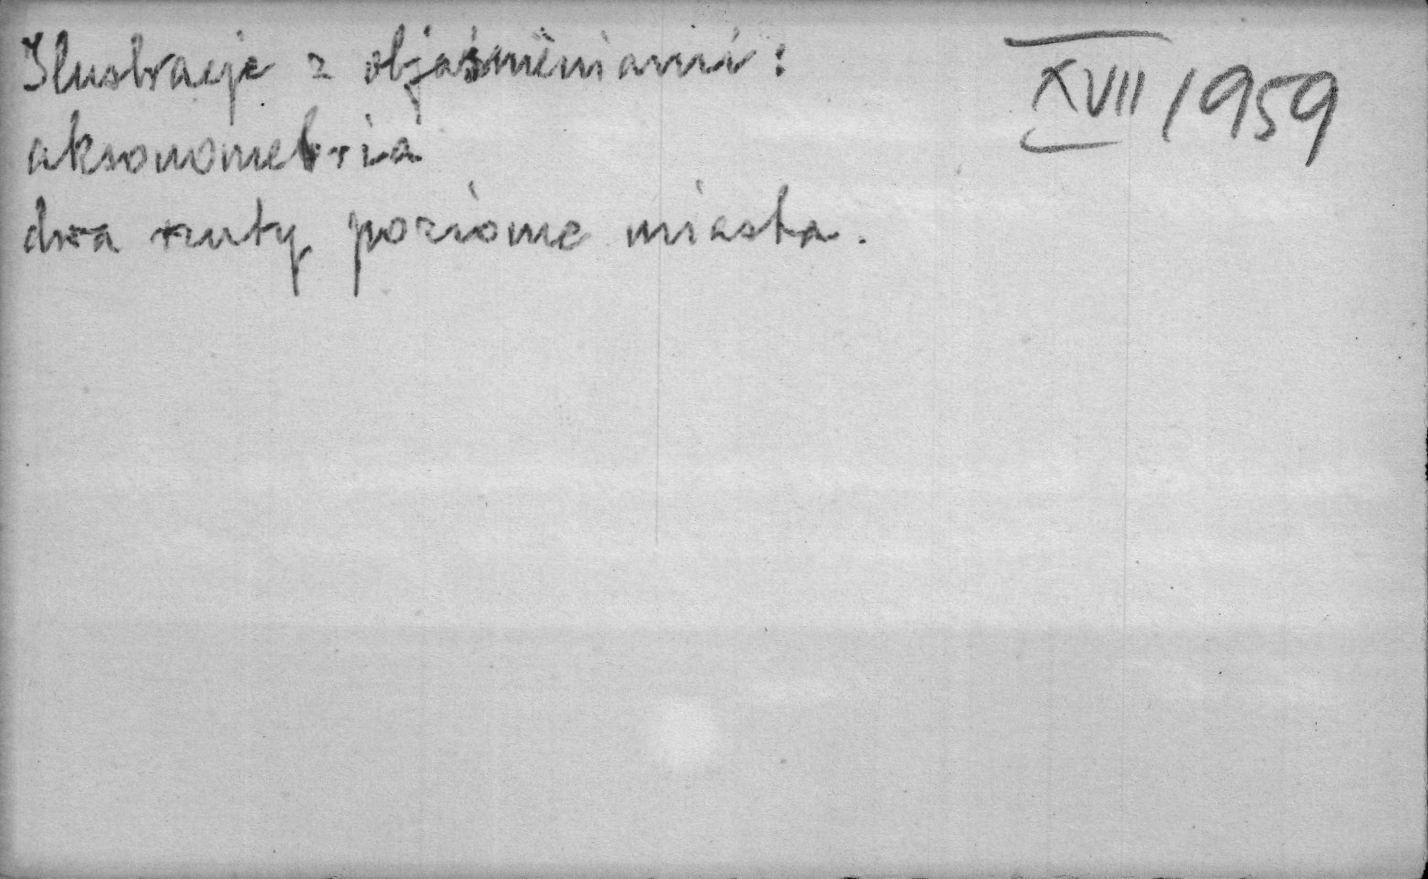 Ilustracje z objaśnieniami:
XVII/1959
aksonometria
dwa rzuty poziome miasta.